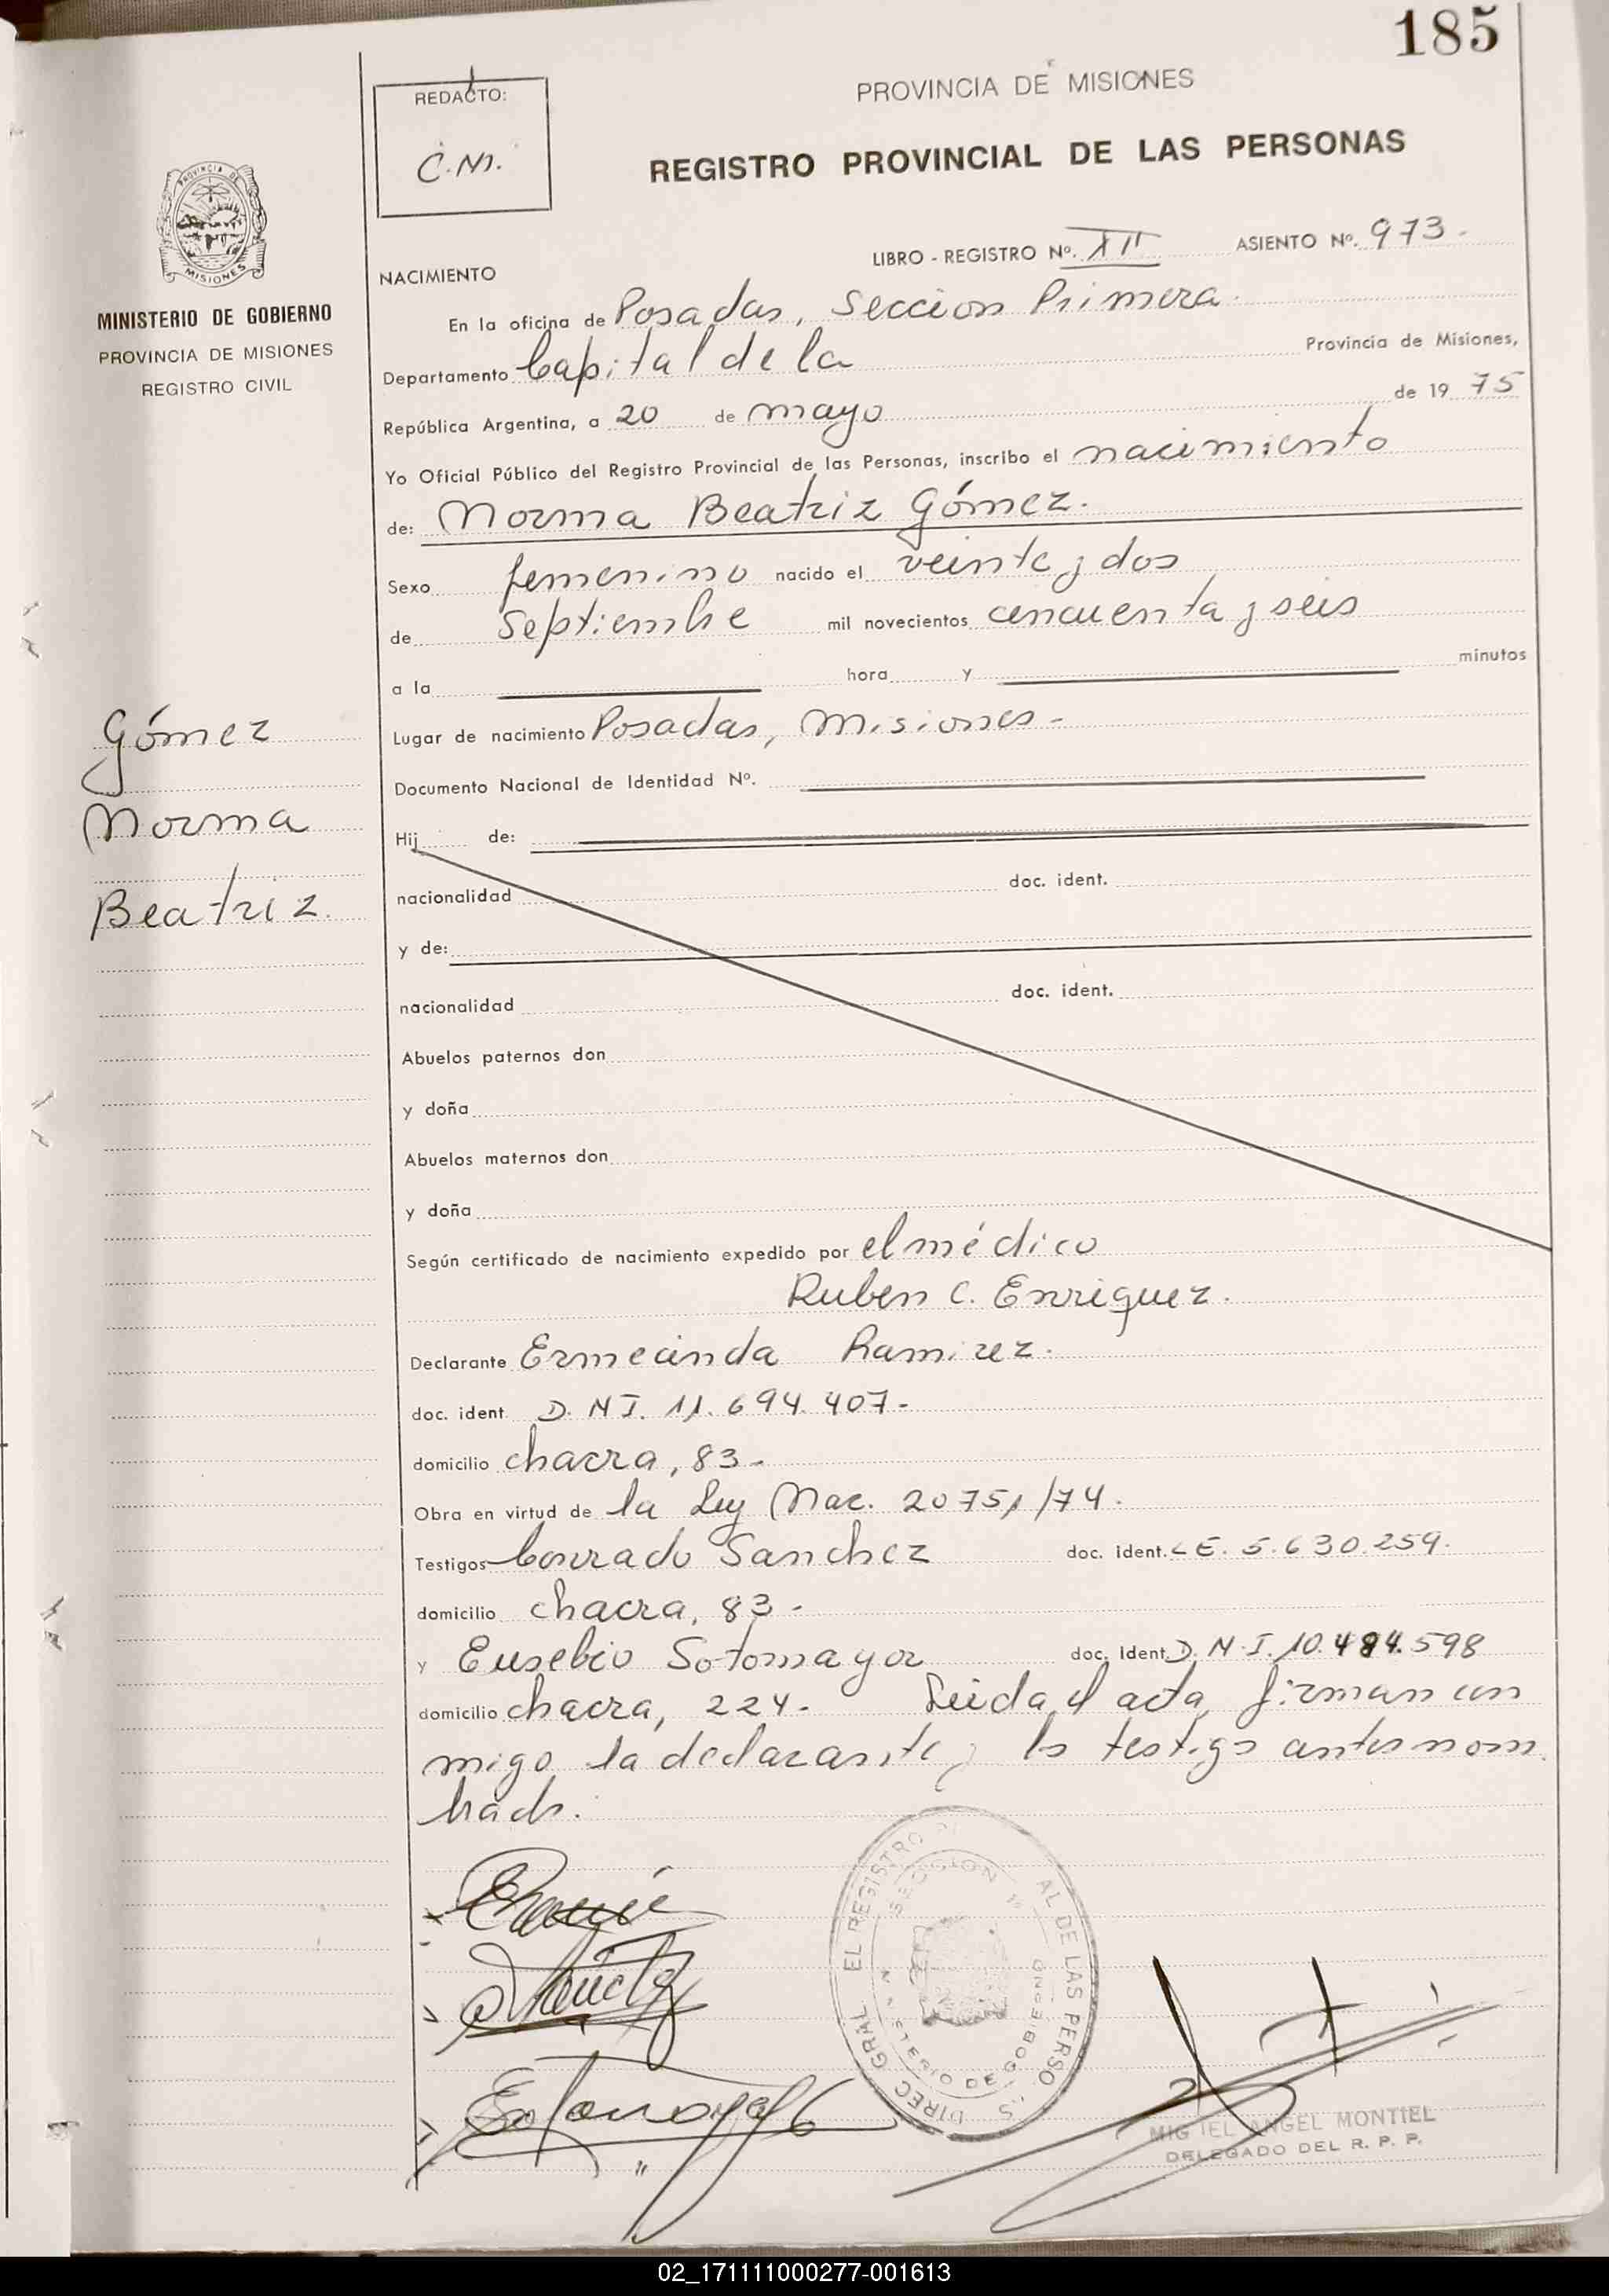 185
REDACTO:
C.M.
PROVINCIA DE MISIONES
REGISTRO PROVINCIAL DE LAS PERSONAS
PROVINCIA DE
MISIONES
MINISTERIO DE GOBIERNO
PROVINCIA DE MISIONES
REGISTRO CIVIL
LIBRO - REGISTRO Nº. XII ASIENTO Nº. 973-
NACIMIENTO
En la oficina de Posadas, Seccion Primera.
Departamento Capital de la Provincia de Misiones,
República Argentina, a 20 de mayo de 19 75
Yo Oficial Público del Registro Provincial de las Personas, inscribo el nacimiento
de: Norma Beatriz Gómez.
Sexo femenino nacido el veinte y dos
de Septiembre mil novecientos cincuenta y seis
a la hora y minutos
Gómez
Norma
Beatriz.
Lugar de nacimiento Posadas, Misiones-
Documento Nacional de Identidad Nº.
Hij de:
nacionalidad doc. ident.
y de:
nacionalidad doc. ident.
Abuelos paternos don
y doña
Abuelos maternos don
y doña
Según certificado de nacimiento expedido por el médico
Ruben C. Enriquez.
Declarante Ramirez.
doc. ident. D.N.I. 11.694.407-
domicilio chacra, 83-
Obra en virtud de la Ley Nac. 20751/74.
Testigos Conrado Sanchez doc. ident. L E. 5.630.259.
domicilio chacra, 83-
y Eusebio Sotomayor doc. ident. D.N.I. 10.484.598
domicilio chacra, 224- Leida el acta, firman con
migo la declarante y los testigos antes nom
brados.
EL REGISTRO AL DE LAS PERSO S
DIREC GRAL
SECCION 1ª
MINISTERIO DE GOBIERNO
MIGUEL ANGEL MONTIEL
DELEGADO DEL R. P. P.
02_171111000277-001613